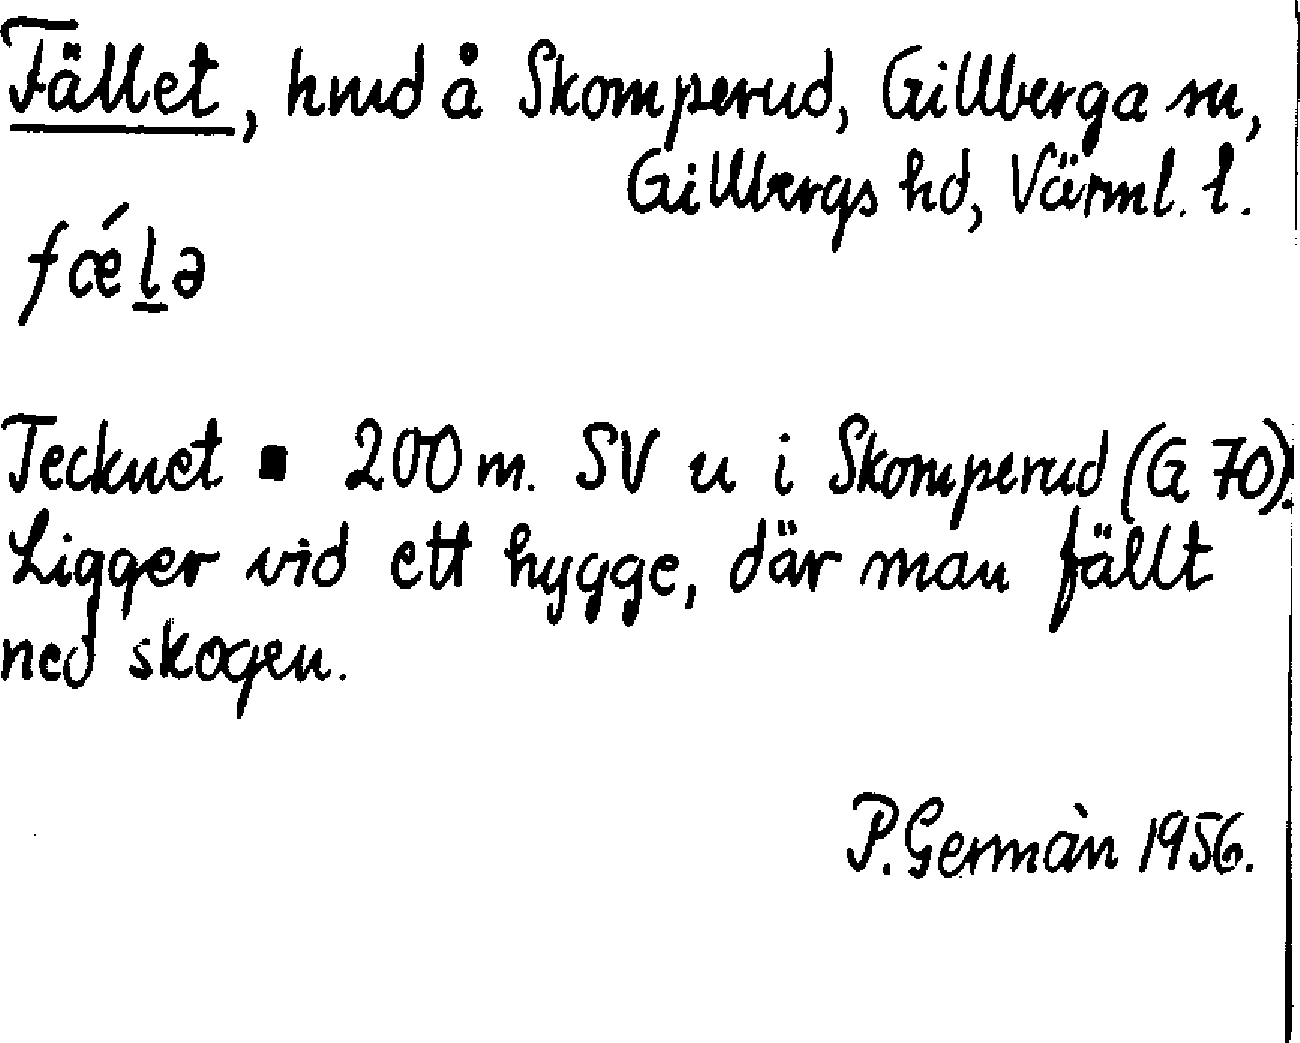 Fället, hmd å Skomperud, Gillberga sn,
Gillbergs hd, Värml. l.
fǽl̠ə
Tecknet ▪ 200 m. SV u i Skomperud (G 70).
Ligger vid ett hygge, där man fällt
ned skogen.
P. Germàn 1956.